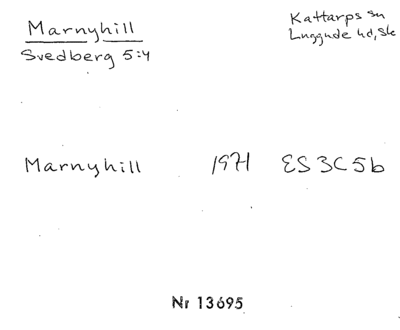 Marnyhill
Svedberg 5:4
Kattarps sn
Luggude hd, Sk
Marnyhill 1971 ES 3C5b
Nr 13695